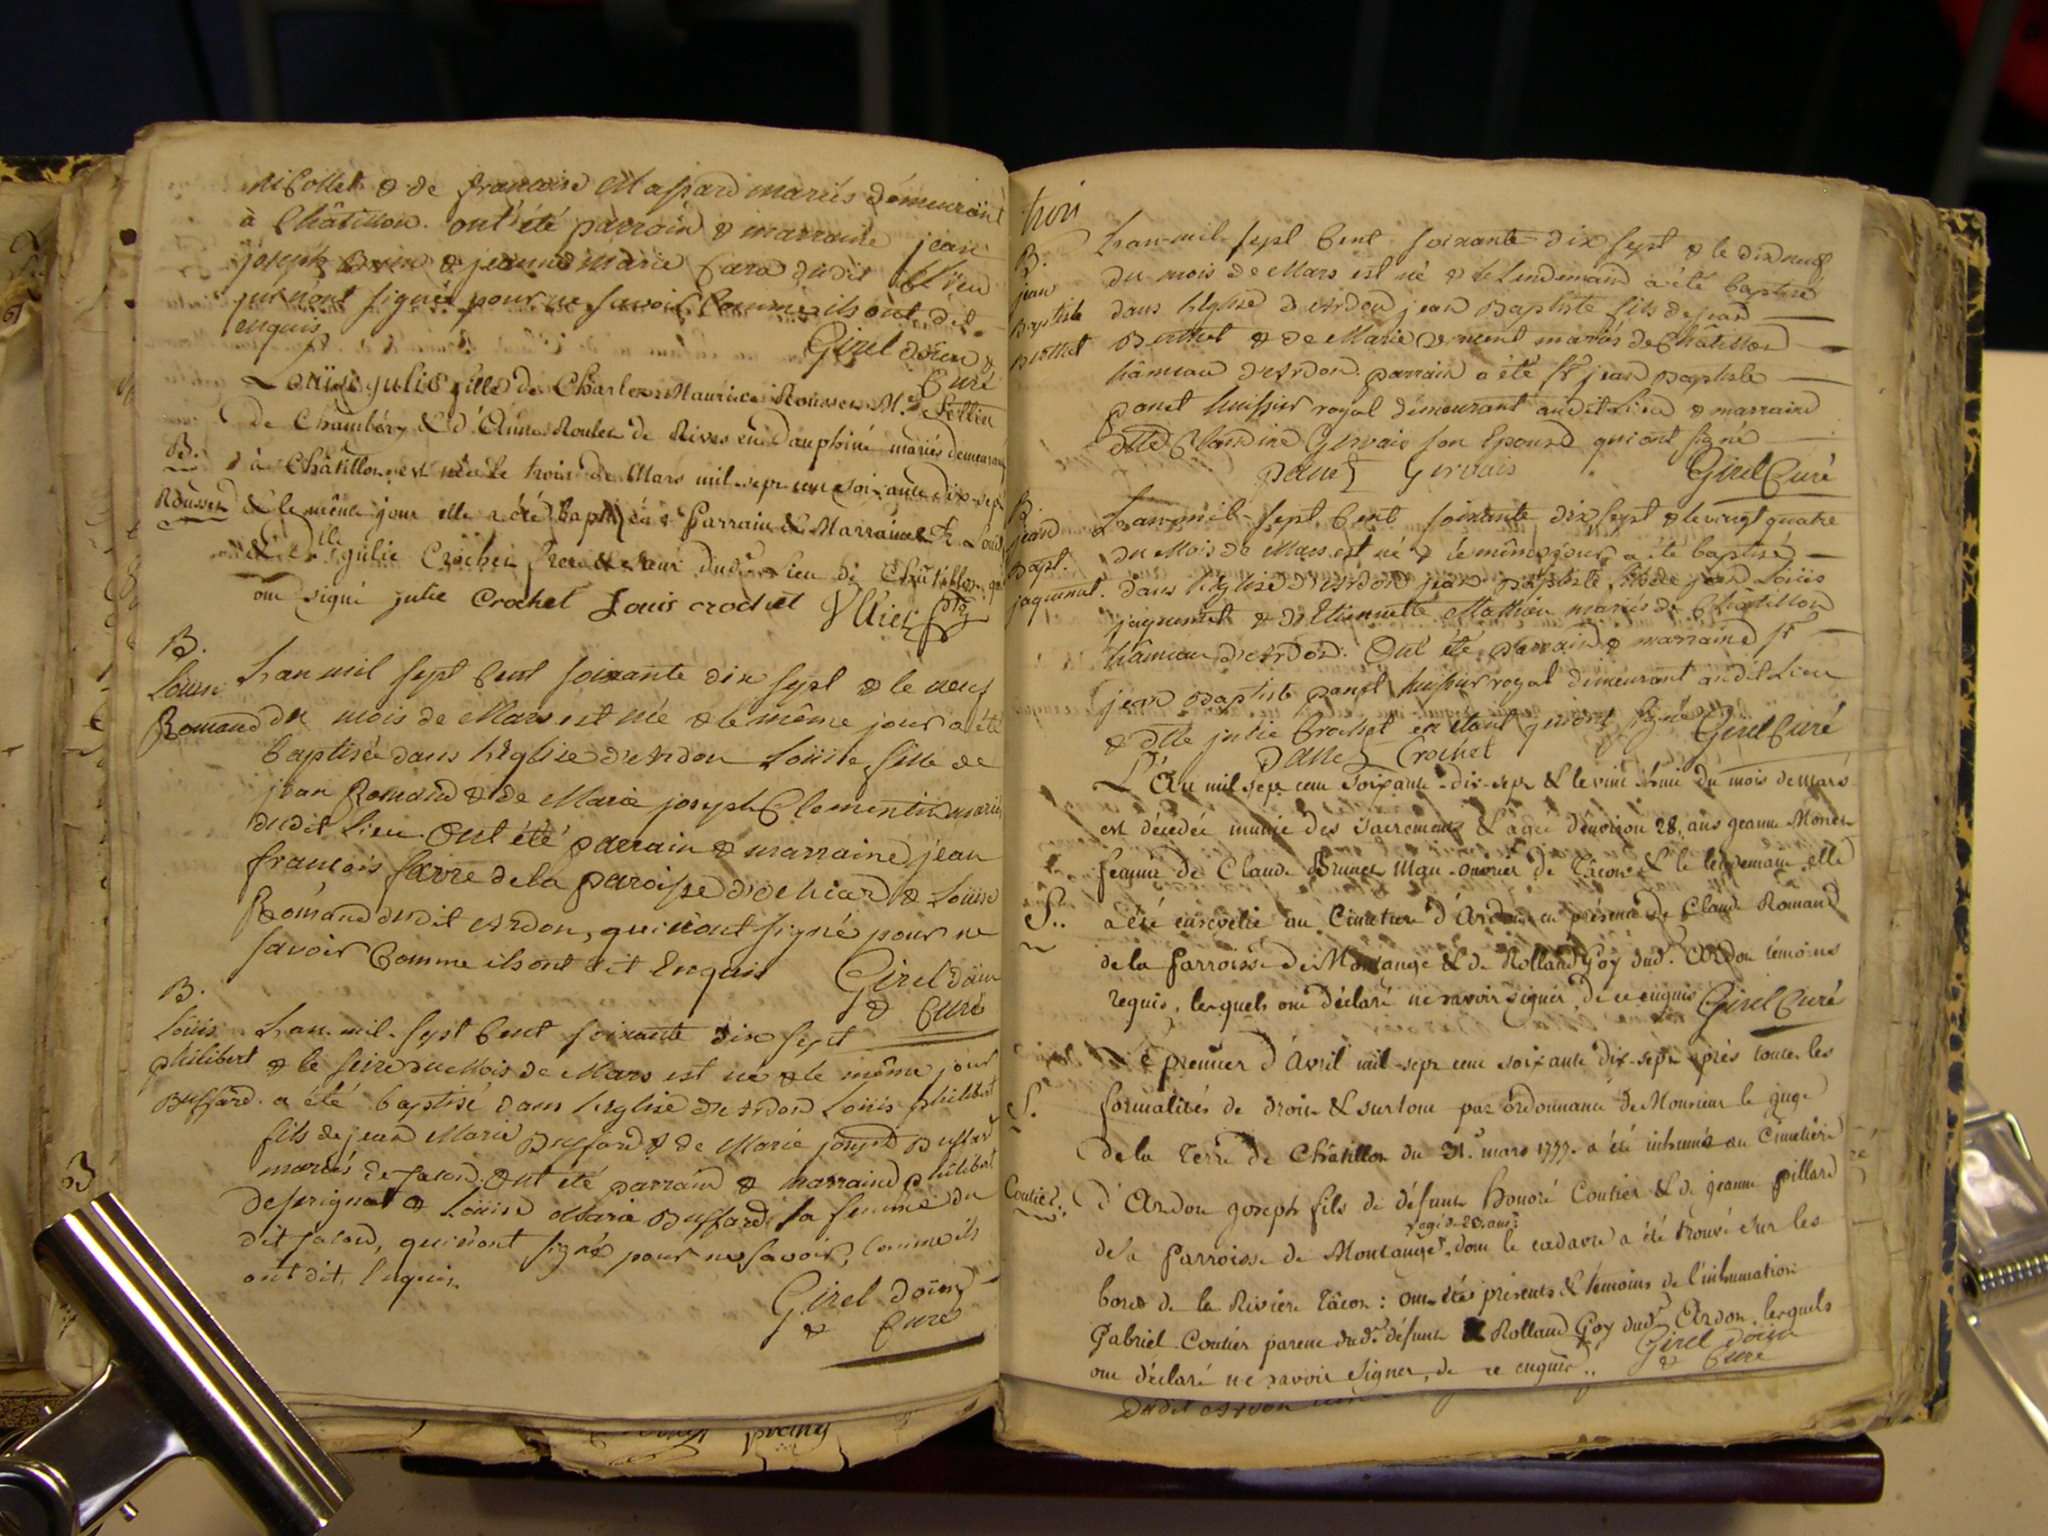 nicollet & de francoise Massard mariés démeurant
à Châtillon. ont été parrain & marraine jean
joseph & jeanne marie dudit lieu
qui n'ont signés pour ne savoir comme ils ont dit
enquis
Girel doïen &
Curé
Louïse julie fille de Charles Maurice Rousset M.d
de Chambéry & d'Anne Roulet de Rives en Dauphiné mariés demeurant
B. à Châtillon est née le trois de Mars mil sept cent soixante dix sept
Rousset & le même jour elle a été baptizée Parrain & Marraine Sr Louis
& dlle julie Crochet frere & sœur dud. lieu de Châtillon qui
ont signé julie Crochet Louis crochet
B.
Louise
Romand
L'an mil sept Cent soixante dix sept & le neuf
du mois de Mars est née & le même jour a été
baptisée dans l'Eglise d'Ardon Loüise fille de
jean Romand & de Marie joseph Clementin mariés
dudit Lieu. Ont été parrain & marraine jean
francois favre de la paroisse d'ochiaz & Loüise
Romand dudit Ardon, qui n'ont signé pour ne
savoir Comme ils ont dit Enquis
Girel doïen
& Curé
B.
Loüis
philibert
Buffard
L'an mil sept Cent soixante dix sept
& le seize du Mois de Mars est né & le même jour
a été baptisé dans l'Eglise d'Ardon Loüis philibert
fils de jean Marie Buffard & de Marie joseph Buffard
mariés de Tacon. Ont été parrain & marraine philibert
Desprignot & Loüise Marie Buffard sa femme du
dit Tacon, qui n'ont signé pour ne savoir, comme ils
ont dit, Enquis.
Girel doïen
& Curé
trois
B.
jean
Baptiste
L'an mil sept Cent soixante dix sept & le dix neuf
du mois de Mars est né & le Lendemain a été baptisé
dans l'Eglise d'Ardon jean Baptiste fils de jean
& de Marie mariés de Châtillon
hâmeau d'Ardon. parrain a été Sr jean Baptiste
panet huissier royal démeurant audit Lieu & marraine
dlle Claudine Gervais son Epouse qui ont signé
panet Gervais Girel Curé
B.
jean
Bapt.
jaquemet.
L'an mil sept Cent soixante dix sept & le vingt quatre
du Mois de Mars est né & le même jour a été baptisé
dans l'Eglise d'Ardon jean Baptiste fils de jean Loüis
jaquemet & d'Etiennette Mathieu mariés de Châtillon
hâmeau d'Ardon. Ont été parrain & marraine Sr
jean Baptiste panet huissier royal démeurant audit Lieu
& dlle julie Crochet qui ont signé Girel Curé
panet Crochet
L'An mil sept cent soixante dix-sept & le vint huit du mois de mars
est décedée munie des sacremens & agée d'environ 28 ans jeanne Monet
femme de Claude Brunet Man-ouvrier de Tacon & le lendemain elle
S. a été ensevelie au Cimetiere d'Ardon en présence de Claude Romand
de la Parroisse de Montange & de Rolland Goy dud.t Ardon témoins
requis, lesquels ont déclaré ne savoir signer de ce enquis Girel Curé
Le premier d'Avril mil sept cent soixante dix-sept après toutes les
S. formalités de droit & surtout par ordonnance de Monsieur le juge
de la Terre de Châtillon du 31. mars 1777. a été inhumé au Cimetière
Coutier. d'Ardon joseph fils de défunt Honoré Coutier & de jeanne pillard
agé de 28 ans
de la Parroisse de Montanges, dont le cadavre a été trouvé sur les
bords de la Riviere Tâcon : ont étés présents & témoins de l'inhumation
Gabriel Coutier parent dud.t défunt & Rolland Goy dud.t Ardon, lesquels
ont déclaré ne savoir signer, de ce enquis.. Girel doïen
& Curé
dudit Ardon